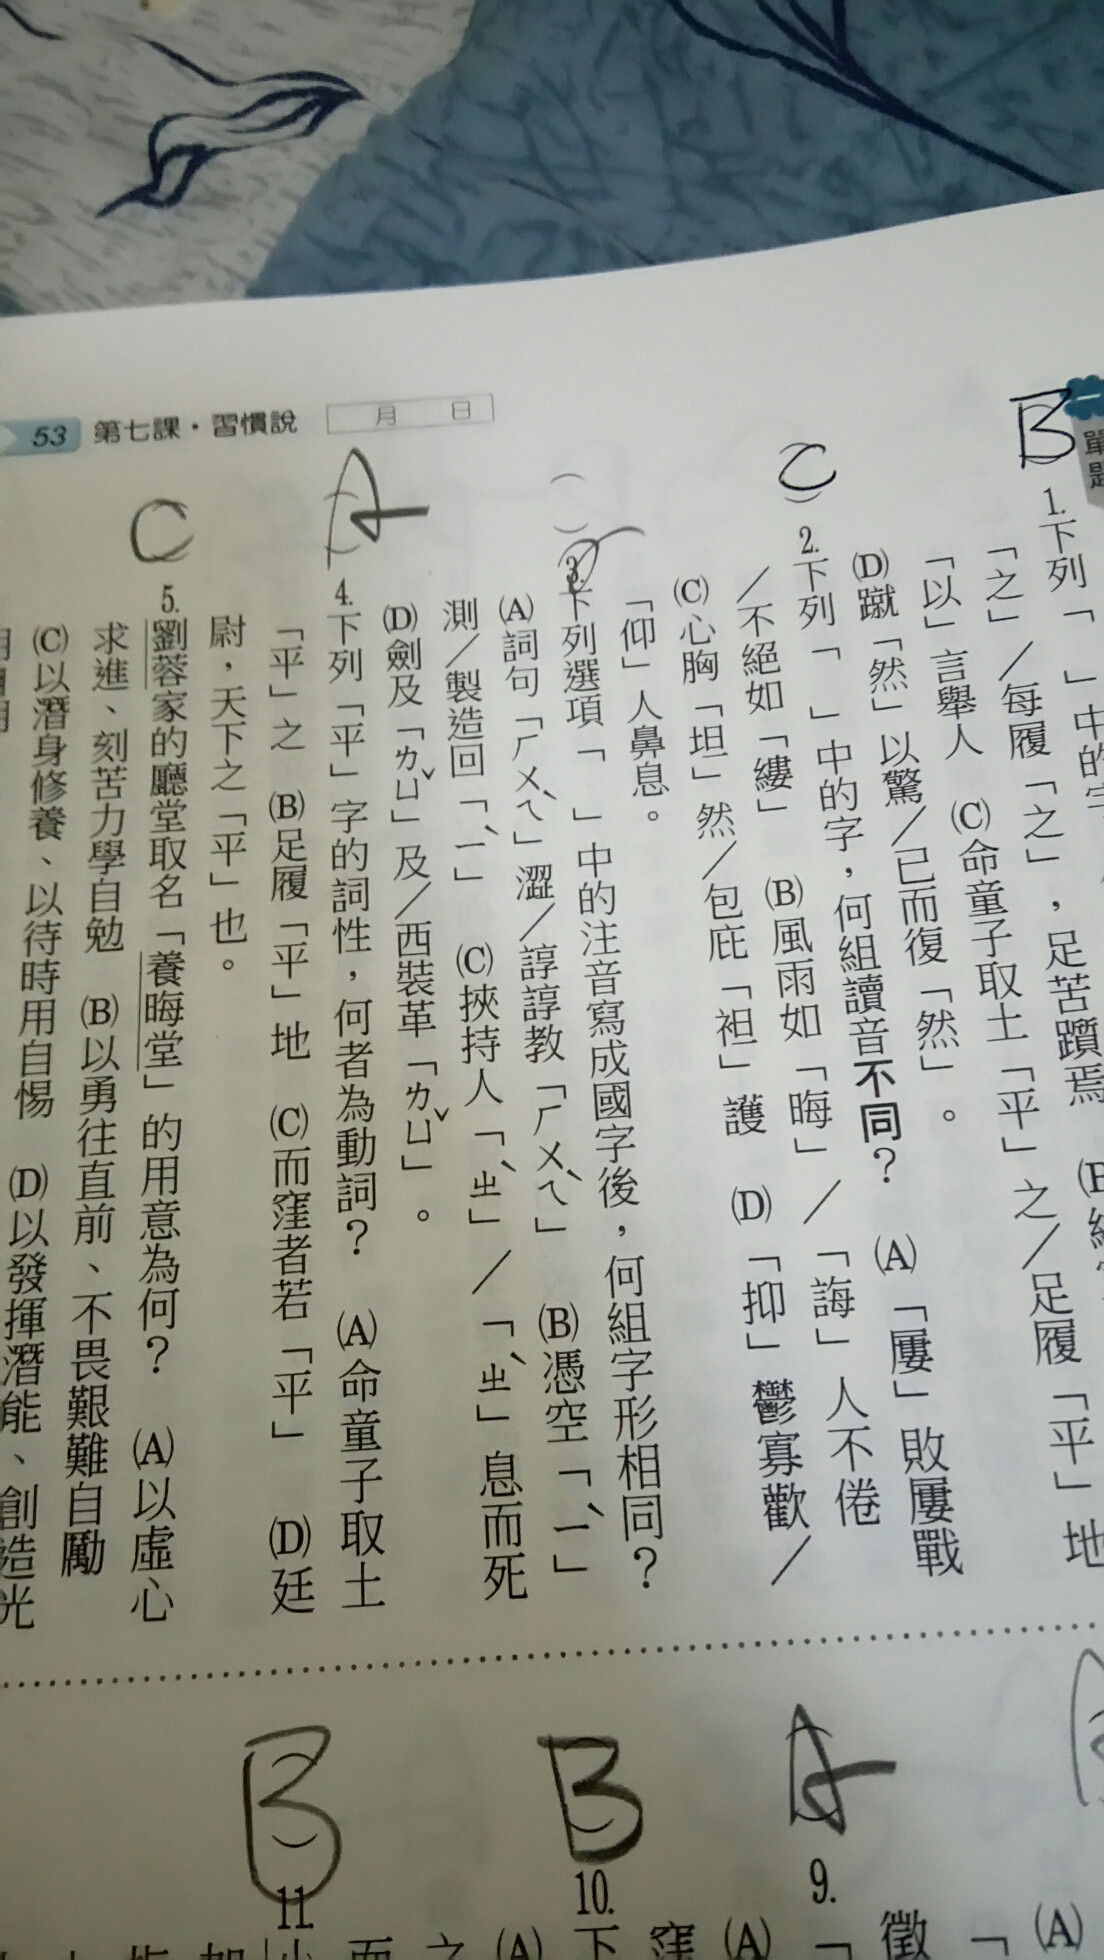 一
單題
B
1.下列「 」中的字
「之」/每履「之」,足苦躓焉 (B
「以」言舉人 (C)命童子取土「平」之/足履「平」地
(D)蹴「然」以驚/已而復「然」。
C
2.下列「 」中的字,何組讀音不同? (A)「屢」敗屢戰
/不絕如「縷」 (B)風雨如「晦」/「誨」人不倦
(C)心胸「坦」然/包庇「袒」護 (D)「抑」鬱寡歡/
「仰」人鼻息。
3.下列選項「 」中的注音寫成國字後,何組字形相同?
(A)詞句「ㄏㄨㄟˋ」澀/諄諄教「ㄏㄨㄟˋ」 (B)憑空「ㄧˋ」
測/製造回「ㄧˋ」 (C)挾持人「ㄓˋ」/「ㄓˋ」息而死
(D)劍及「ㄌㄩˇ」及/西裝革「ㄌㄩˇ」。
A
4.下列「平」字的詞性,何者為動詞? (A)命童子取土
「平」之 (B)足履「平」地 (C)而窪者若「平」 (D)廷
尉,天下之「平」也。
C
5.劉蓉家的廳堂取名「養晦堂」的用意為何? (A)以虛心
求進、刻苦力學自勉 (B)以勇往直前、不畏艱難自勵
(C)以潛身修養、以待時用自惕 (D)以發揮潛能、創造光
53 第七課・習慣說 月 日
(A)
「
徵
A
9.
(A)
窪
B
10.下
(A)
之
而
B
11.